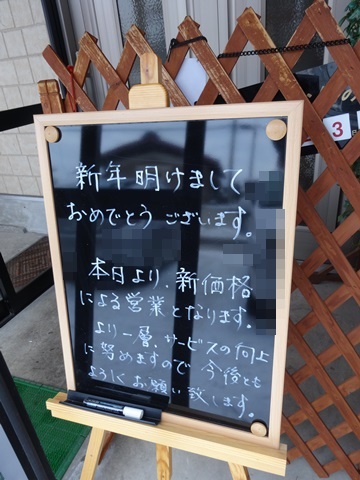 新年明けまして
おめでとうございます。
本日より、新価格
による営業となります。
より一層、サービスの向上
に努めますので今後とも
よろしくお願い致します。
3